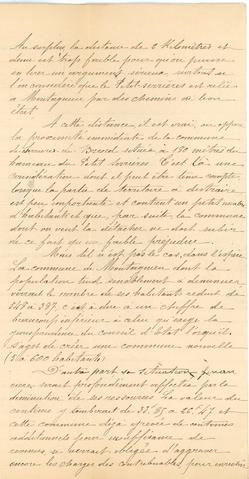 Au surplus la distance de 2 kilomètres et
demi est trop faible pour qu'on puisse
en tirer un argument sérieux surtout si
l'on considère que le Petit-Serrières est relié
à Montagneux par des chemins de bon
état.
A cette distance, il est vrai, on oppose
la proximité immédiate de la commune
de Brecod située à 180 mètres du
hameau du Petit Serrières C'est là une
considération dont il peut être tenu compte
lorsque la partie de territoire à distraire
est peu importante et contient un petit nombre
d'habitants et que, par suite, la commune
dont on veut la détacher ne doit subir
de ce fait qu'un faible préjudice.
Mais tel n'est pas le cas, dans l'espèce
La commune de Montagneux dont la
population tend sensiblement à diminuer
verrait le nombre de ses habitants réduit de
549 à 397, c'est à dire à un chiffre de
beaucoup inférieur à celui qu'exige la
jurisprudence du conseil d'Etat lorsqu'il
s'agit de créer une commune nouvelle
(500 à 600 habitants)
D'autre part sa situation finan
cière serait profondément affectée par la
diminution de ses ressources La valeur du
centime y tomberait de 33f,85 à 26f,47 et
cette commune déjà grevée de centimes
additionnels pour insuffisance de
revenus se verrait obligée d'aggraver
encore les charges des contribuables pour